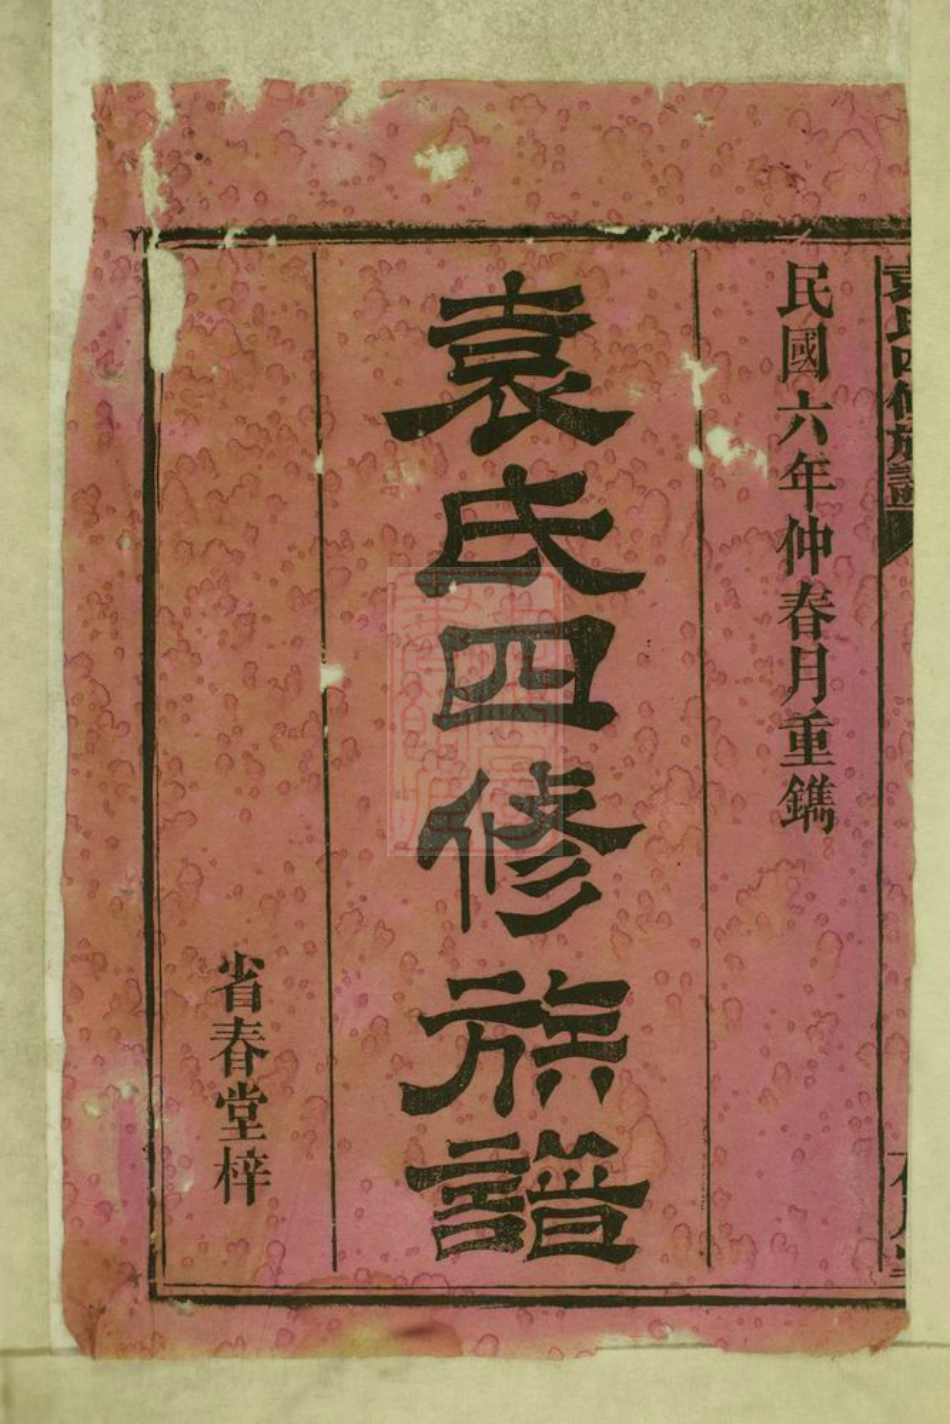 袁氏四修族譜
民國六年仲春月重鐫
袁氏四修族譜
省春堂梓